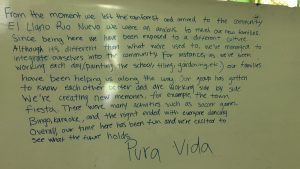 From the moment we left the rainforest and arrived to the community
El Llano Rio Nuevo we were on anxious to meet our new families.
Since being here we have been exposed to a different culture.
Although it's different than what we're used to, we've managed to
integrate ourselves into the community for instance, as we've been
working each day (painting the school, tiling, gardening etc.) our families
have been helping us along the way. Our group has gotten
to know each other better and are working side by side
We're creating new memories, for example the town
fiesta. There were many activities such as soccer games,
Bingo, karaoke, and the night ended with everyone dancing
Overall, our time here has been fun and we're excited to
see what the future holds.
Pura Vida